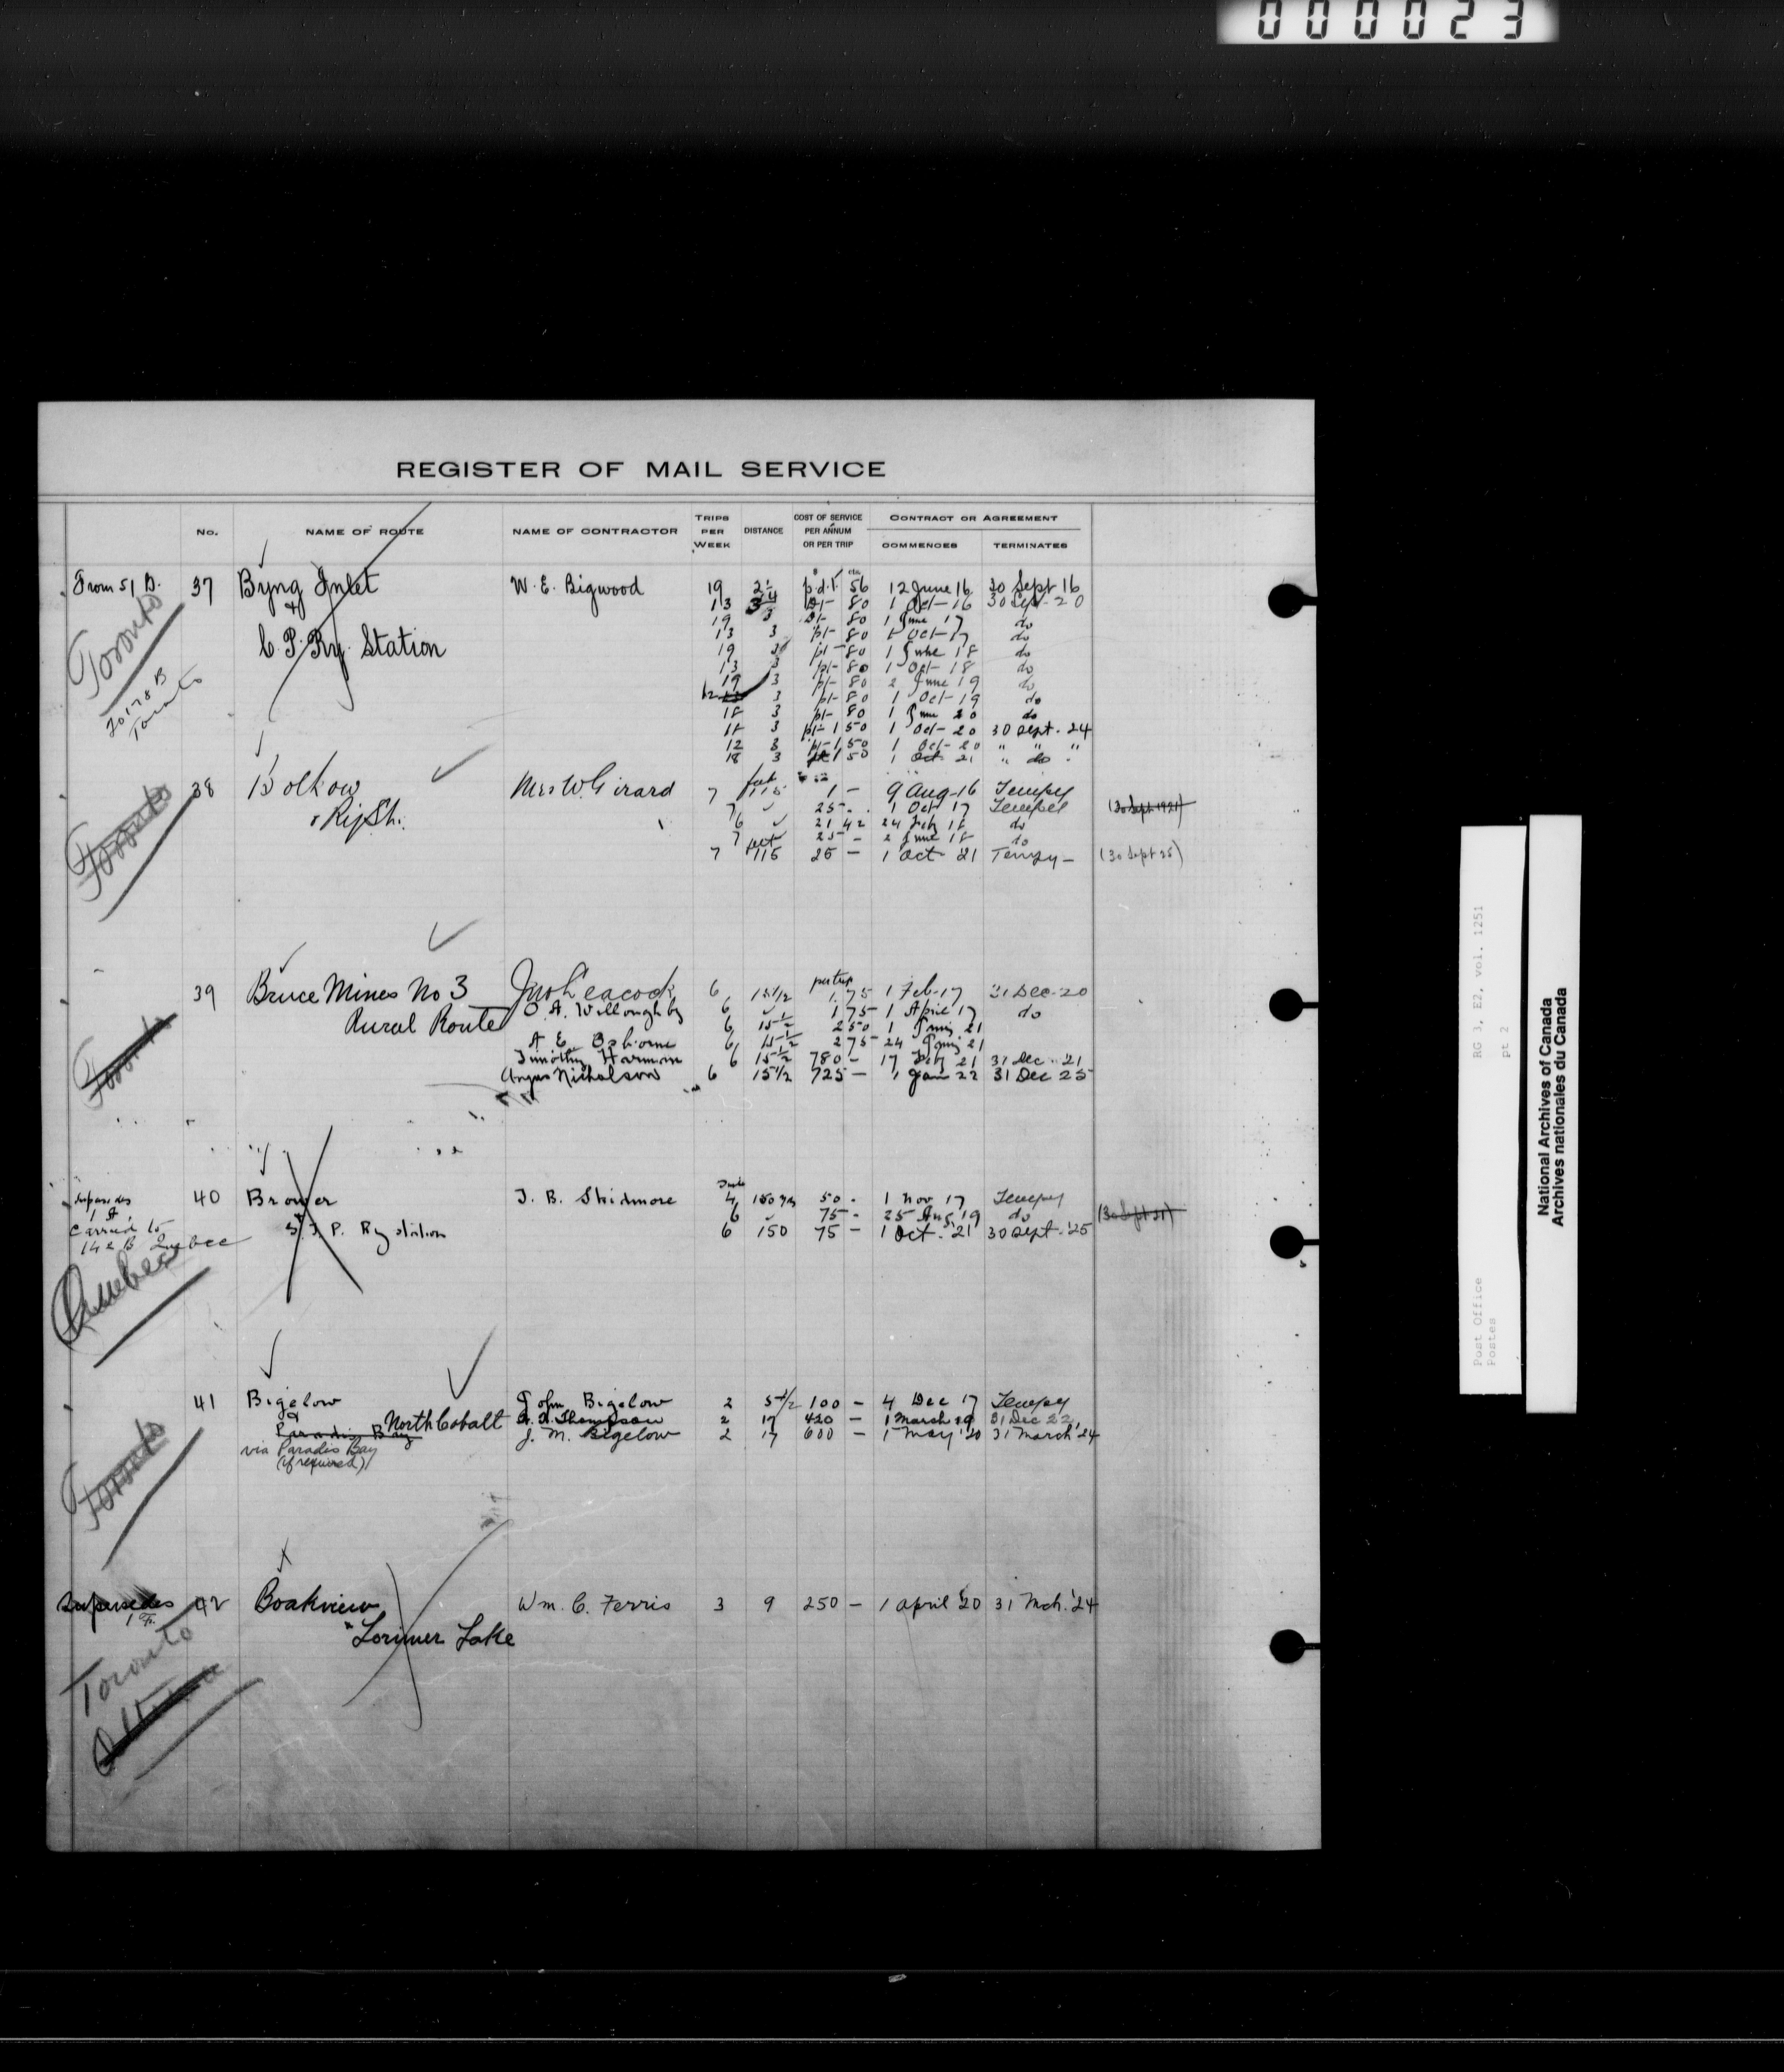 000023
REGISTER OF MAIL SERVICE
No. NAME OF ROUTE NAME OF CONTRACTOR TRIPS PER WEEK DISTANCE COST OF SERVICE PER ANNUM OR PER TRIP CONTRACT OR AGREEMENT COMMENCES TERMINATES
From 51 B. 37 Byng Inlet W. E. Bigwood 19 2 1/4 p.d.t. 56 12 June 16 30 Sept 16
& 13 80 1 Oct-16 30 Sept-20
19 3 80 1 June 17 do
C. P. Ry. Station 13 3 pt- 80 1 Oct-17 do
19 pt- 80 1 June 18 do
13 3 pt- 80 1 Oct-18 do
19 3 pt- 80 2 June 19 do
12 3 pt- 80 1 Oct-19 do
18 3 pt- 80 1 June 20 do
18 3 pt- 1 50 1 Oct-20 30 Sept-24
12 3 pt- 1 50 1 Oct-20 " " "
18 3 1 50 1 Oct 21 " do "
Toronto
To 178 B
Toronto
38 Bolkow Mrs W. Girard 7 115 1 - 9 Aug-16 Tempy
7 25 - 1 Oct 17 Tempy (30 Sept 1921)
6 21 42 24 Feby 18 do
7 25 - 2 June 18 do
7 feet 115 25 - 1 Oct 21 Tempy - (30 Sept 25)
Toronto
39 Bruce Mines No 3 Jno Peacock 6 15 1/2 per trip 1.75 1 Feb-17 31 Dec-20
Rural Route O. A. Willoughby 6 1 75 1 April 17 do
6 15 1/2 2 50 1 Jany 21
A E Osborne 6 15 1/2 2 75 24 Jany 21
Timothy Harman 6 15 1/2 780 - 17 Feby 21 31 Dec. 21
Angus Nicholson 6 15 1/2 725 - 1 Jan 22 31 Dec 25
Toronto
Supersedes 40 Brower J. B. Skidmore 4 150 yds 50 - 1 Nov 17 Tempy
1 A. 6 75 - 25 Aug 19 do (30 Sept 21)
Carried to G. T. P. Ry station 6 150 75 - 1 Oct. 21 30 Sept. '25
142 B Quebec
Quebec
41 Bigelow John Bigelow 2 5 1/2 100 - 4 Dec 17 Tempy
& North Cobalt A. A. Thompson 2 17 420 - 1 March 19 31 Dec 22
Paradis Bay J. M. Bigelow 2 17 600 - 1 May '20 31 March '24
via Paradis Bay
(if required)
Toronto
Supersedes 42 Boakview Wm. C. Ferris 3 9 250 - 1 April '20 31 Mch. '24
1 F. " Lorimer Lake
Toronto
Ottawa
RG 3, E2, vol. 1251
pt 2
Post Office
Postes
National Archives of Canada
Archives nationales du Canada